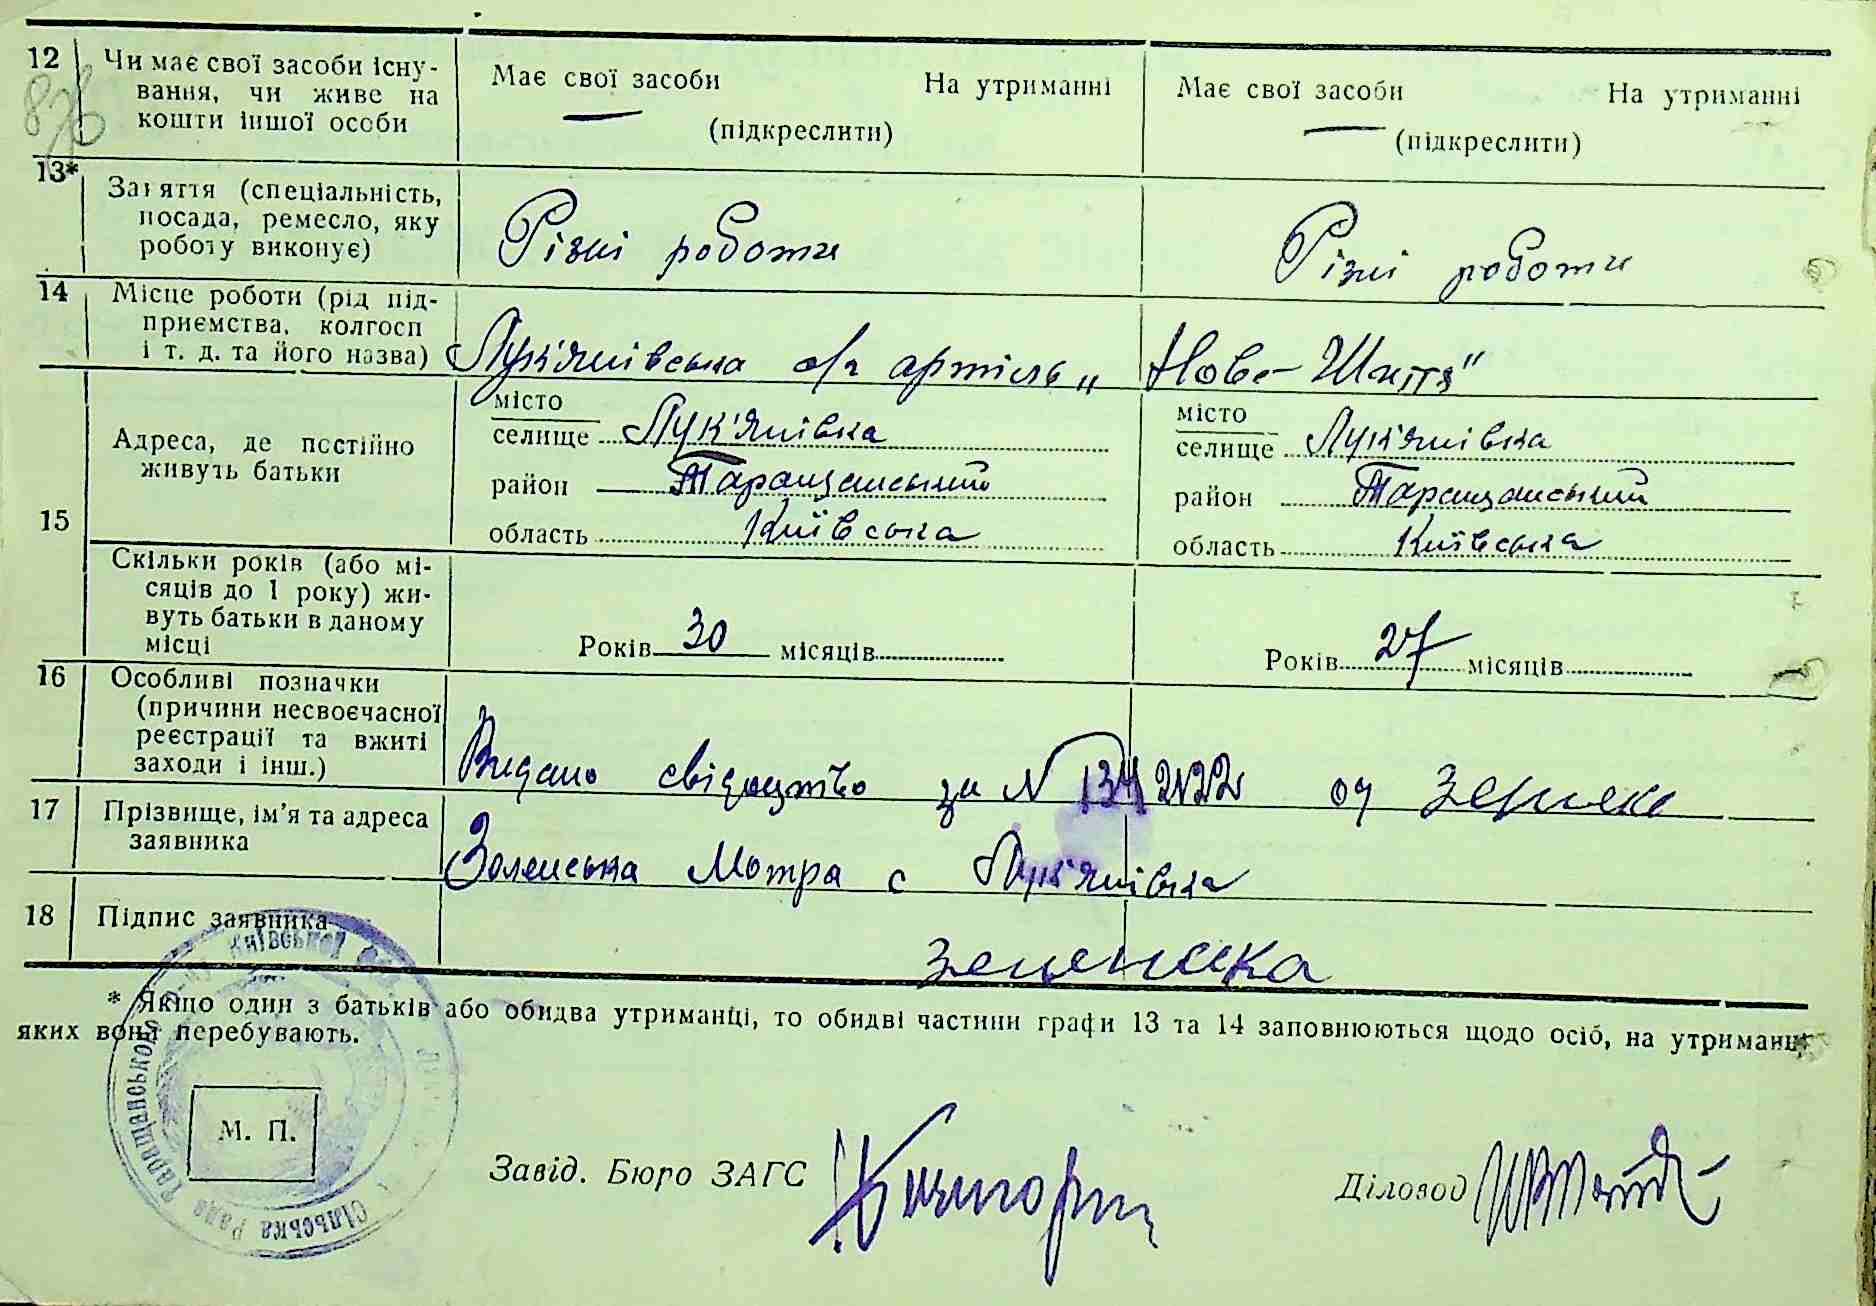 12 Чи має свої засоби існу-
вання, чи живе на
кошти іншої особи
Має свої засоби На утриманні
(підкреслити)
Має свої засоби На утриманні
(підкреслити)
13* Заняття (спеціальність,
посада, ремесло, яку
роботу виконує)
Різні роботи
Різні роботи
14 Місце роботи (рід під-
приємства, колгосп
і т. д. та його назва)
Лук'янівська с/г артіль „Нове Життя"
15
Адреса, де постійно
живуть батьки
місто
селище Лук'янівка
район Таращанський
область Київська
місто
селище Лук'янівка
район Таращанський
область Київська
Скільки років (або мі-
сяців до 1 року) жи-
вуть батьки в даному
місці
Років 30 місяців
Років 27 місяців
16 Особливі позначки
(причини несвоєчасної
реєстрації та вжиті
заходи і інш.)
Видано свідоцтво за №
17 Прізвище, ім'я та адреса
заявника
Мотра с Лук'янівка
18 Підпис заявника
* Якщо один з батьків або обидва утриманці, то обидві частини графи 13 та 14 заповнюються щодо осіб, на утриманні
яких вони перебувають.
Київської
Таращанського
Сільська Рада
М. П.
Завід. Бюро ЗАГС
Діловод